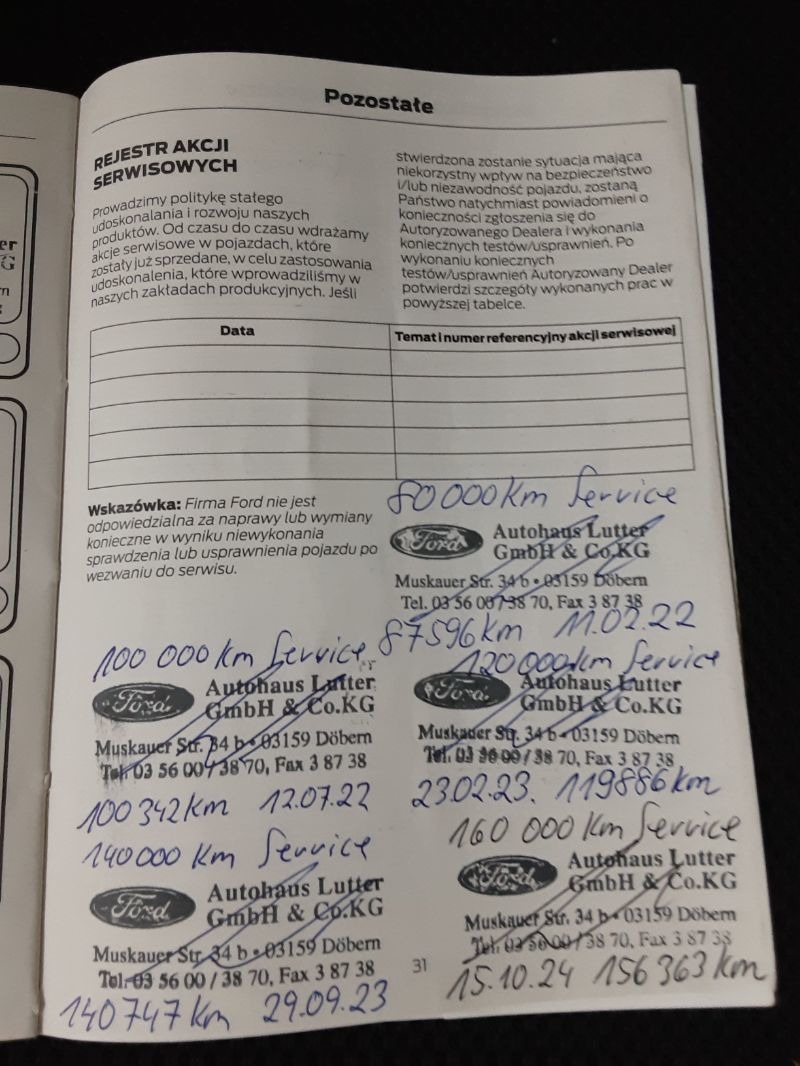 Pozostałe
REJESTR AKCJI
SERWISOWYCH
Prowadzimy politykę stałego
udoskonalania i rozwoju naszych
produktów. Od czasu do czasu wdrażamy
akcje serwisowe w pojazdach, które
zostały już sprzedane, w celu zastosowania
udoskonalenia, które wprowadziliśmy w
naszych zakładach produkcyjnych. Jeśli
stwierdzona zostanie sytuacja mająca
niekorzystny wpływ na bezpieczeństwo
i/lub niezawodność pojazdu, zostaną
Państwo natychmiast powiadomieni o
konieczności zgłoszenia się do
Autoryzowanego Dealera i wykonania
koniecznych testów/usprawnień. Po
wykonaniu koniecznych
testów/usprawnień Autoryzowany Dealer
potwierdzi szczegóły wykonanych prac w
powyższej tabelce.
Data
Temat i numer referencyjny akcji serwisowej
Wskazówka: Firma Ford nie jest
odpowiedzialna za naprawy lub wymiany
konieczne w wyniku niewykonania
sprawdzenia lub usprawnienia pojazdu po
wezwaniu do serwisu.
80 000 Km Service
Ford
Autohaus Lutter
GmbH & Co.KG
Muskauer Str. 34 b • 03159 Döbern
Tel. 03 56 00 / 38 70, Fax 3 87 38
87596 km 11.02.22
100 000 Km Service
Ford
Autohaus Lutter
GmbH & Co.KG
Muskauer Str. 34 b • 03159 Döbern
Tel. 03 56 00 / 38 70, Fax 3 87 38
100 342 Km 12.07.22
120 000 km Service
Ford
Autohaus Lutter
GmbH & Co.KG
Muskauer Str. 34 b • 03159 Döbern
Tel. 03 56 00 / 38 70, Fax 3 87 38
23.02.23. 119886 km
140 000 Km Service
Ford
Autohaus Lutter
GmbH & Co.KG
Muskauer Str. 34 b • 03159 Döbern
Tel. 03 56 00 / 38 70, Fax 3 87 38
140 747 km 29.09.23
160 000 Km Service
Ford
Autohaus Lutter
GmbH & Co.KG
Muskauer Str. 34 b • 03159 Döbern
Tel. 03 56 00 / 38 70, Fax 3 87 38
15.10.24 156 363 km
31